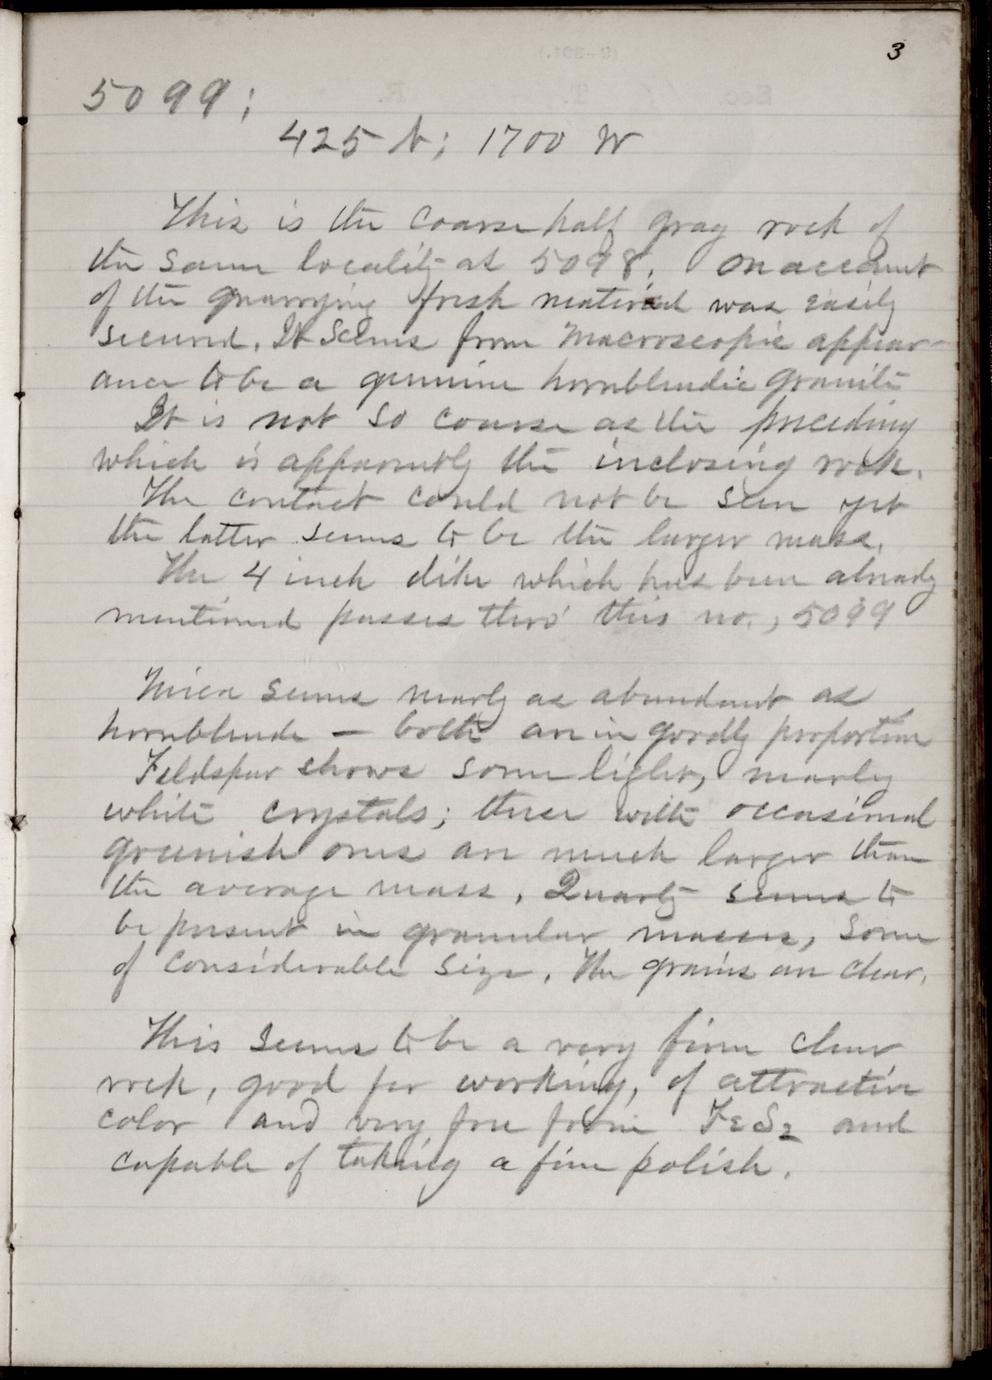 3
5099;
425 N; 1700 W
This is the coarse half gray rock of
the same locality as 5098. On account
of the quarrying fresh material was easily
secured. It seems from macroscopic appear-
ance to be a genuine hornblendic granite
It is not so coarse as the preceding
which is apparently the inclosing rock.
The contact could not be seen yet
the latter seems to be the larger mass.
The 4 inch dike which has been already
mentioned passes thro' this no., 5099
Mica seems nearly as abundant as
hornblende — both are in goodly proportion
Feldspar shows some light, nearly
white crystals; these with occasional
greenish ones are much larger than
the average mass. Quartz seems to
be present in granular masses, some
of considerable size. The grains are clear.
This seems to be a very firm clear
rock, good for working, of attractive
color and very free from FeS2 and
capable of taking a fine polish.